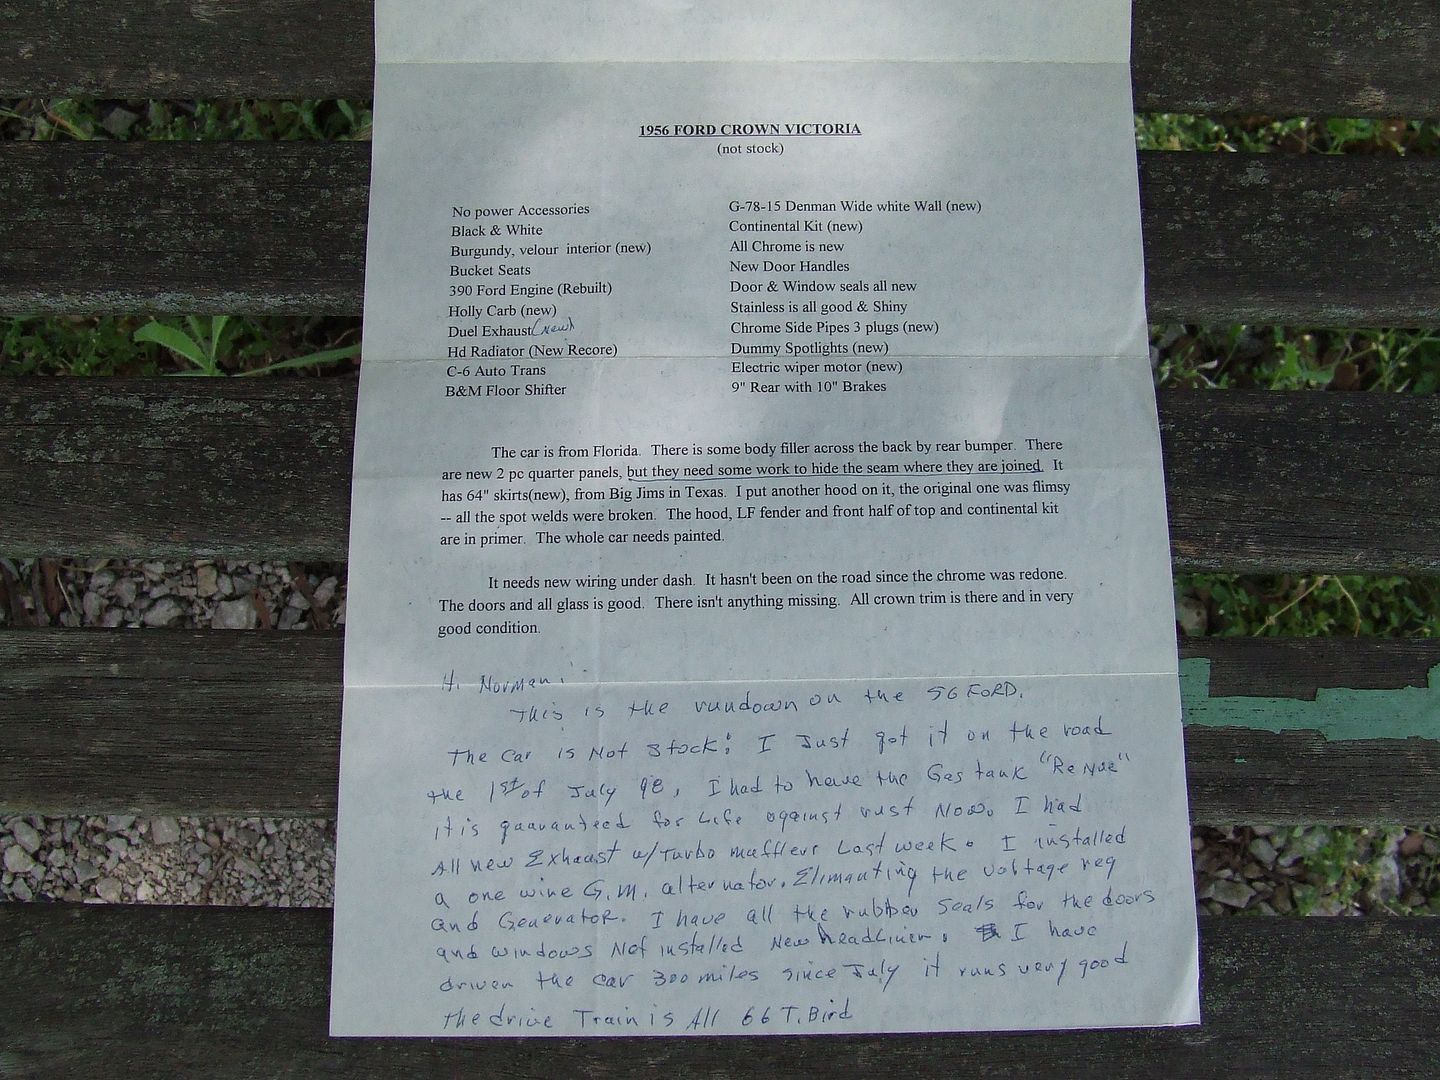 1956 FORD CROWN VICTORIA
(not stock)
No power Accessories
Black & White
Burgundy, velour interior (new)
Bucket Seats
390 Ford Engine (Rebuilt)
Holly Carb (new)
Duel Exhaust (new)
Hd Radiator (New Recore)
C-6 Auto Trans
B&M Floor Shifter
G-78-15 Denman Wide white Wall (new)
Continental Kit (new)
All Chrome is new
New Door Handles
Door & Window seals all new
Stainless is all good & Shiny
Chrome Side Pipes 3 plugs (new)
Dummy Spotlights (new)
Electric wiper motor (new)
9" Rear with 10" Brakes
The car is from Florida. There is some body filler across the back by rear bumper. There
are new 2 pc quarter panels, but they need some work to hide the seam where they are joined. It
has 64" skirts(new), from Big Jims in Texas. I put another hood on it, the original one was flimsy
-- all the spot welds were broken. The hood, LF fender and front half of top and continental kit
are in primer. The whole car needs painted.
It needs new wiring under dash. It hasn't been on the road since the chrome was redone.
The doors and all glass is good. There isn't anything missing. All crown trim is there and in very
good condition.
Hi Norman!
This is the rundown on the 56 FORD.
The car is Not stock! I Just got it on the road
the 1st of July 98, I had to have the Gas tank "Re Nue"
it is guaranteed for Life against rust Now. I had
All new Exhaust w/ Turbo mufflers Last week. I installed
a one wire G.M. alternator. Elimanting the voltage reg
and Generator. I have all the rubber seals for the doors
and windows Not installed New headliner. I have
driven the car 300 miles since July it runs very good
the drive Train is All 66 T. Bird